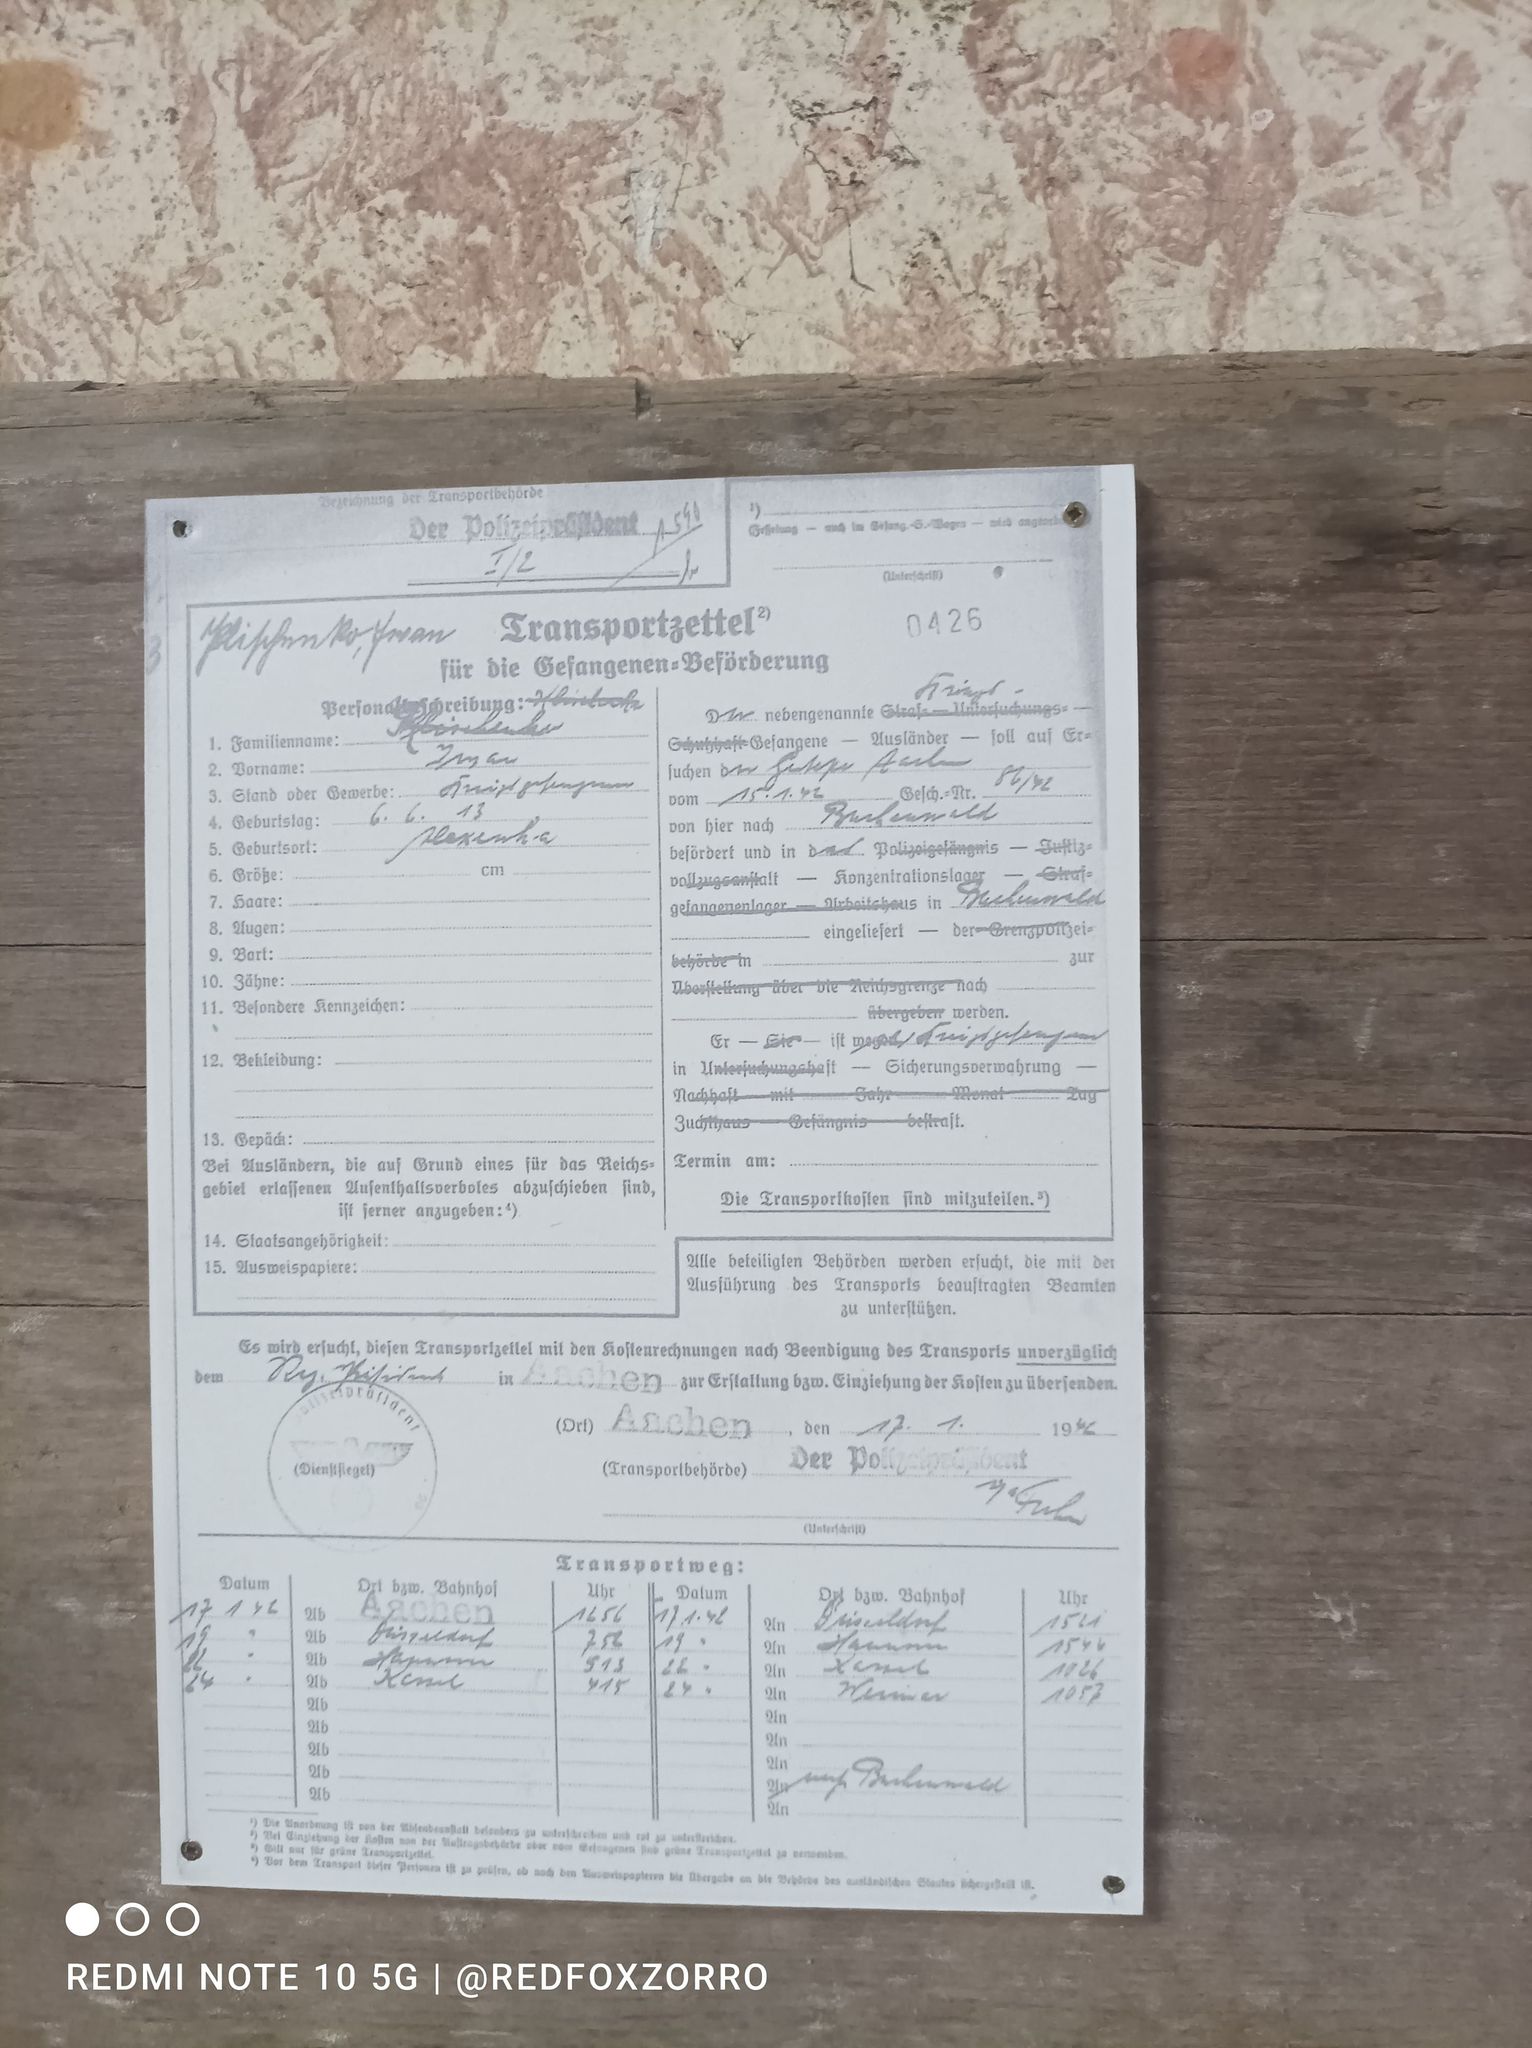 Bezeichnung der Transportbehörde
Der Polizeipräsident
I/2
1)
(Unterschrift)
0426
Plischenko, Iwan
Transportzettel2)
für die Gefangenen-Beförderung
Personalbeschreibung:
1. Familienname:
2. Vorname: Iwan
3. Stand oder Gewerbe: Kriegsgefangener
4. Geburtstag: 6. 6. 13
5. Geburtsort:
6. Größe: cm
7. Haare:
8. Augen:
9. Bart:
10. Zähne:
11. Besondere Kennzeichen:
12. Bekleidung:
13. Gepäck:
Bei Ausländern, die auf Grund eines für das Reichs-
gebiet erlassenen Aufenthaltsverbotes abzuschieben sind,
ist ferner anzugeben:4)
14. Staatsangehörigkeit:
15. Ausweispapiere:
Kriegs-
Der nebengenannte Straf- — Untersuchungs- —
Schutzhaft-Gefangene — Ausländer — soll auf Er-
suchen der Gestapo Aachen
vom 15.1.42 Gesch.-Nr. 86/42
von hier nach Buchenwald
befördert und in das Polizeigefängnis — Justiz-
vollzugsanstalt — Konzentrationslager — Straf-
gefangenenlager — Arbeitshaus in Buchenwald
eingeliefert — der Grenzpolizei-
behörde in zur
Überstellung über die Reichsgrenze nach
übergeben werden.
Er — Sie — ist Kriegsgefangener
in Untersuchungshaft — Sicherungsverwahrung —
Nachhaft — mit Jahr Monat Tag
Zuchthaus — Gefängnis — bestraft.
Termin am:
Die Transportkosten sind mitzuteilen.3)
Alle beteiligten Behörden werden ersucht, die mit der
Ausführung des Transports beauftragten Beamten
zu unterstützen.
Es wird ersucht, diesen Transportzettel mit den Kostenrechnungen nach Beendigung des Transports unverzüglich
dem Reg. Präsident in Aachen zur Erstattung bzw. Einziehung der Kosten zu übersenden.
(Ort) Aachen, den 17. 1. 1942
Polizeipräsident
(Dienstsiegel)
(Transportbehörde) Der Polizeipräsident
(Unterschrift)
Transportweg:
Datum Ort bzw. Bahnhof Uhr Datum Ort bzw. Bahnhof Uhr
17 1 42 Ab Aachen 17.1.42 An Düsseldorf 1521
19 " Ab Düsseldorf 756 19 " An Hannover 1544
22 " Ab Hannover 513 22 " An Kassel 1026
24 " Ab Kassel 415 24 " An Weimar 1057
Ab An
Ab An
Ab An
Ab An nach Buchenwald
Ab An
1) Die Anordnung ist von der Absendeanstalt besonders zu unterschreiben und rot zu unterstreichen.
2) Bei Einziehung der Kosten von der Auftragsbehörde oder vom Gefangenen sind grüne Transportzettel zu verwenden.
3) Gilt nur für grüne Transportzettel.
4) Vor dem Transport dieser Personen ist zu prüfen, ob nach den Ausweispapieren die Übergabe an die Behörde des ausländischen Staates sichergestellt ist.
REDMI NOTE 10 5G | @REDFOXZORRO